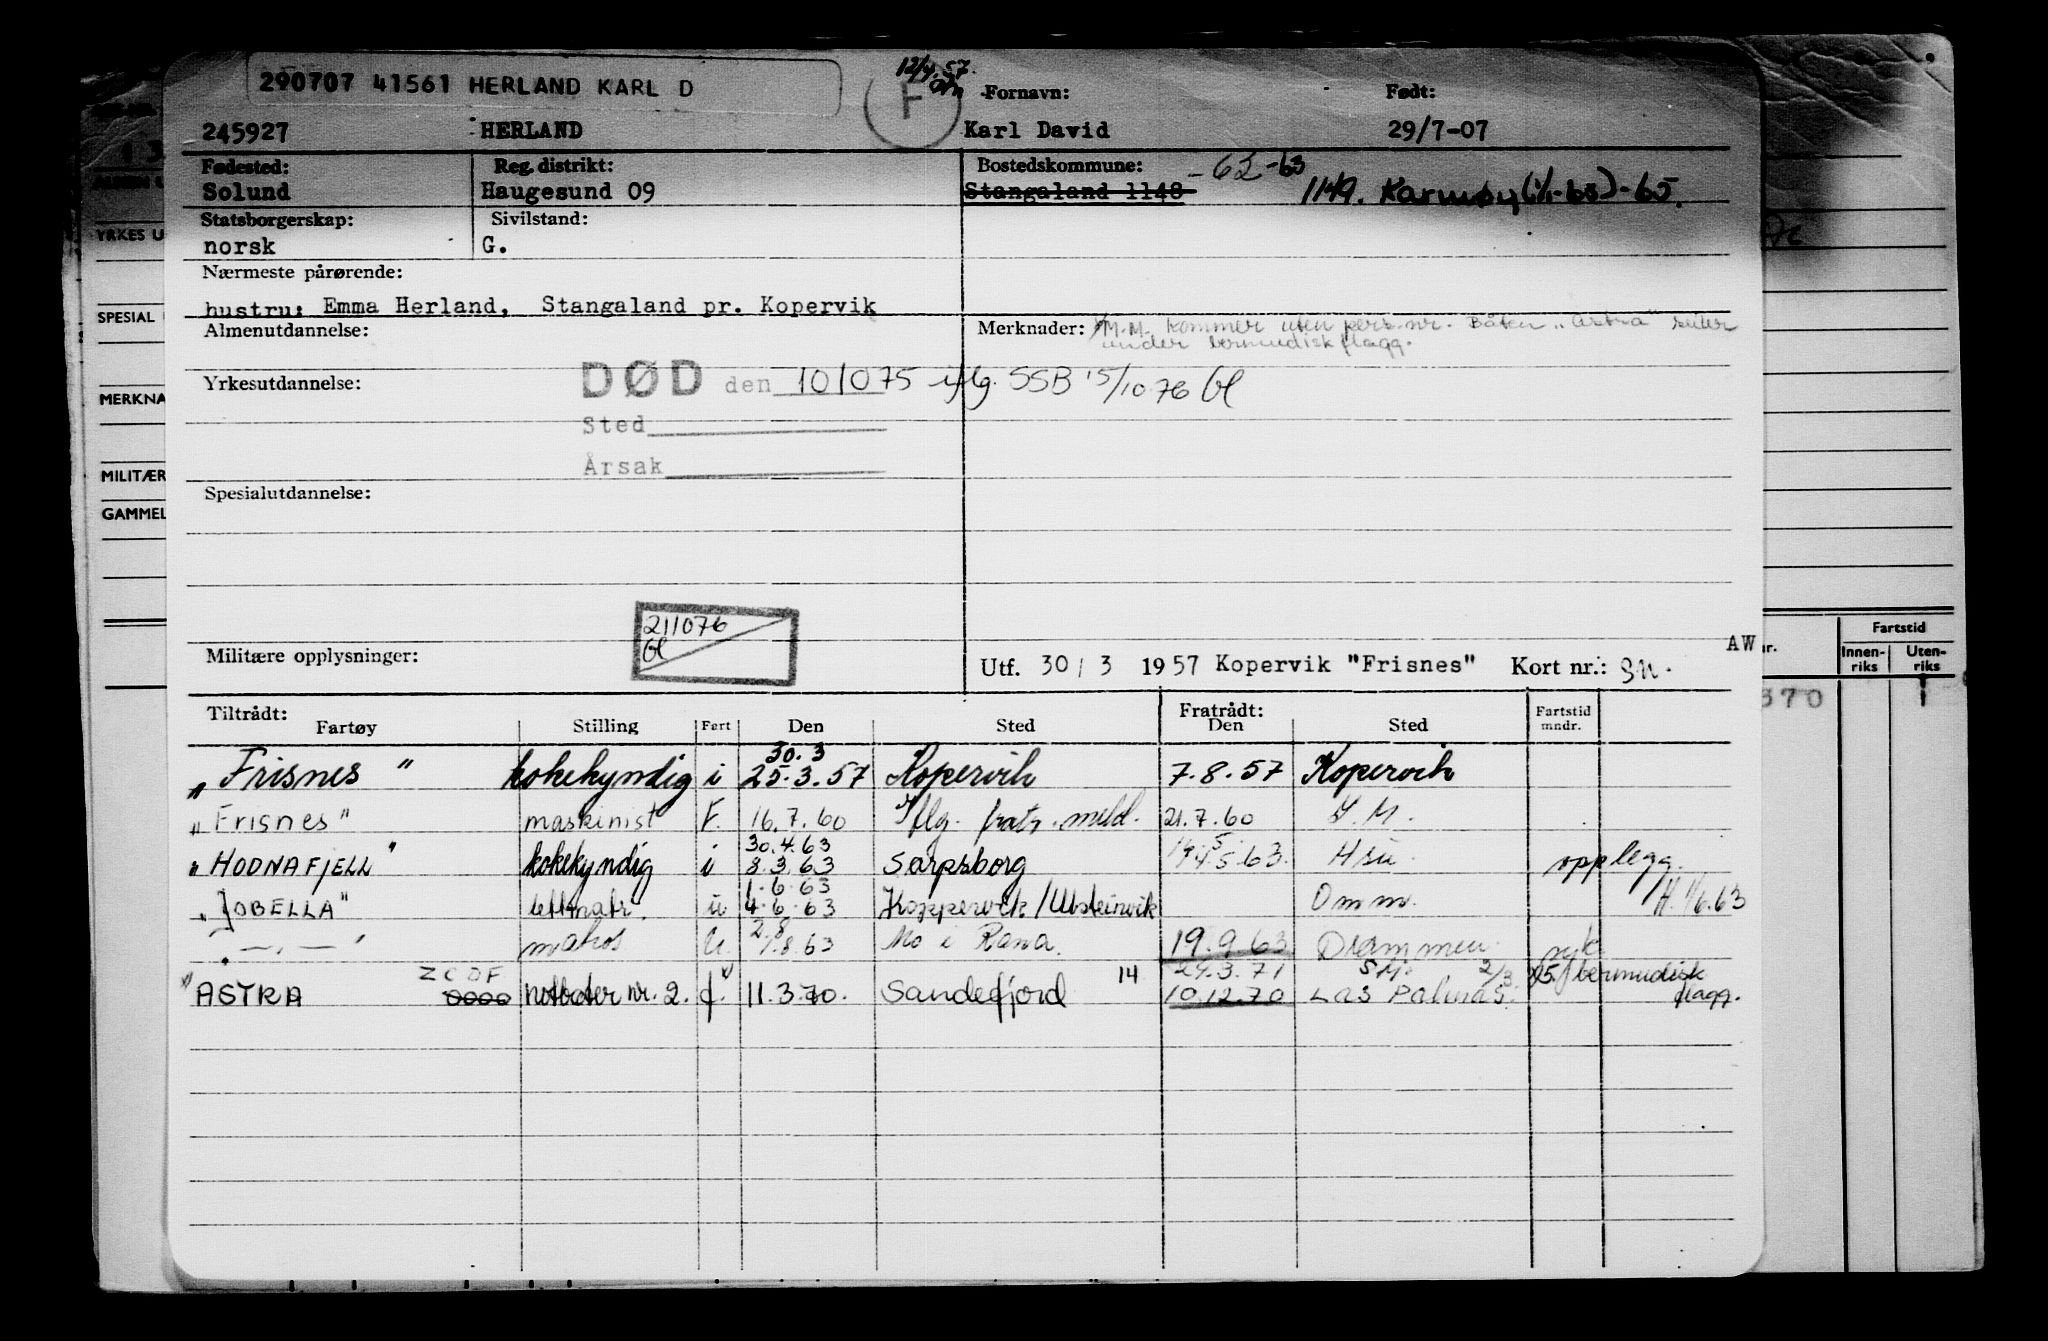 290707 41561 HERLAND KARL D
12/4.57.
F
Fornavn: Født:
245927 HERLAND Karl David 29/7-07
Fødested: Reg. distrikt: Bostedskommune: -62-63
Solund Haugesund 09 Stangaland 1148 1149. Karmøy (1/1-63)-65.
Statsborgerskap: Sivilstand:
norsk G.
Nærmeste pårørende:
hustru: Emma Herland, Stangaland pr. Kopervik
Almenutdannelse: Merknader: M.M. kommer uten pers.nr. Båten "Astra" seiler
under bermudisk flagg.
Yrkesutdannelse: DØD den 101075 iflg. SSB 15/10 76 bl
Sted
Årsak
Spesialutdannelse:
211076
bl
Militære opplysninger:
AW
Utf. 30/3 1957 Kopervik "Frisnes" Kort nr.:
Tiltrådt: Fratrådt:
Fartøy Stilling Fart Den Sted Den Sted Fartstid mndr.
30.3
"Frisnes" kokekyndig i 25.3.57 Kopervik 7.8.57 Kopervik
"Frisnes" maskinist F. 16.7.60 Iflg. fratr. meld. 21.7.60 S.M.
30.4.63
"HODNAFJELL" kokekyndig i 8.3.63 Sarpsborg 14.5.63. Hsu. opplegg.
1.6.63
"JOBELLA" lettmatr. u 4.6.63 Koppervik/Ulsteinvik Omm. H. 1/6.63
2.8
" — " — " matros U. 1.8.63 Mo i Rana. 19.9.63 Drammen. syk
ZCDF 14 24.3.71 S.M. 2/3 bermudisk
"ASTRA nr. 2. f. 11.3.70. Sandefjord 10.12.70 Las Palmas. flagg.
YRKES U
SPESIAL
MERKNA
MILITÆR
GAMMEL
Fartstid
Innen-
riks
Uten-
riks
370